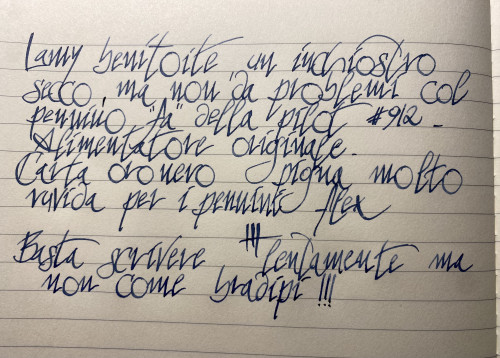 Lamy benitoite un inchiostro
secco, ma non da problemi col
pennino "fa" della pilot #912.
Alimentatore originale.
Carta oronero pigna molto
ruvida per i pennini flex
Basta scrivere lentamente ma
non come bradipi !!!